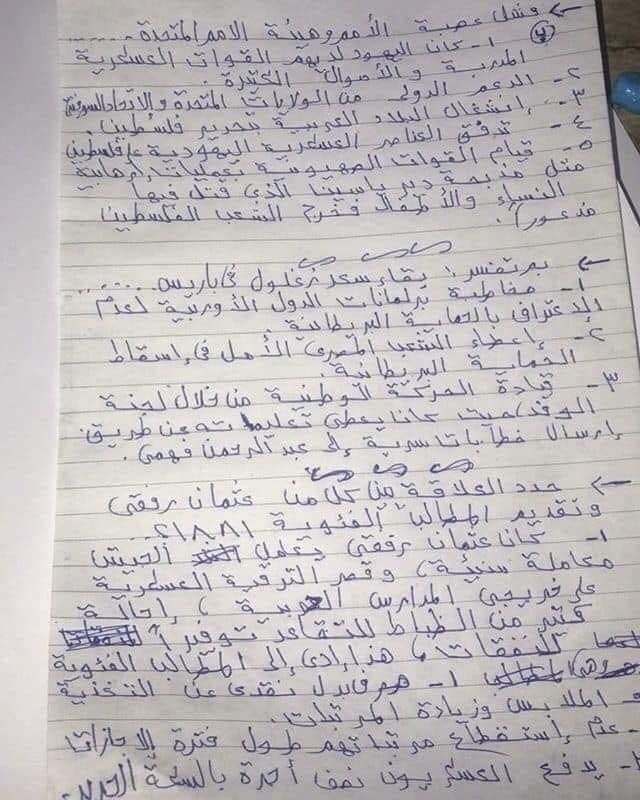 ← فشل عصبة الأمم وهيئة الامم المتحدة ......
(٧) ١- كان اليهود لديهم القوات العسكرية
المدربة والأموال الكثيرة.
٢- الدعم الدولى من الولايات المتحدة والاتحاد السوفيتى
٣- إنشغال البلاد العربية بتحرير فلسطين.
٤- تدفق العناصر العسكرية اليهودية على فلسطين
٥- قيام القوات الصهيونية بعمليات إرهابية
مثل مذبحة دير ياسين الذى قتل فيها
النساء والأطفال فخرج الشعب الفلسطينى
مذعوراً.
← بم تفسر: بقاء سعد زغلول فى باريس ......
١- مخاطبة برلمانات الدول الأوربية لعدم
الإعتراف بالحماية البريطانية.
٢- إعطاء الشعب المصرى الأمل فى إسقاط
الحماية البريطانية.
٣- قيادة الحركة الوطنية من خلال لجنة
الوفد حيث كان يعطى تعليماته عن طريق
إرسال خطابات سرية إلى عبد الرحمن فهمى.
← حدد العلاقة بين كل من عثمان رفقى
وتقديم المطالب الفئوية ١٨٨١م.
١- كان عثمان رفقى يعامل الجيش
معاملة سيئة، وقصر الترقية العسكرية
على خريجى المدارس الحربية، إحالة
كثير من الظباط للتقاعد توفيراً
للنفقات، هذا أدى إلى المطالب الفئوية
١- مقابل نقدى عن التغذية
- الملابس وزيادة المرتبات.
- عدم إستقطاع مرتباتهم طول فترة الاجازات
يدفع العسكريون نصف أجرة بالسكة الحديد.